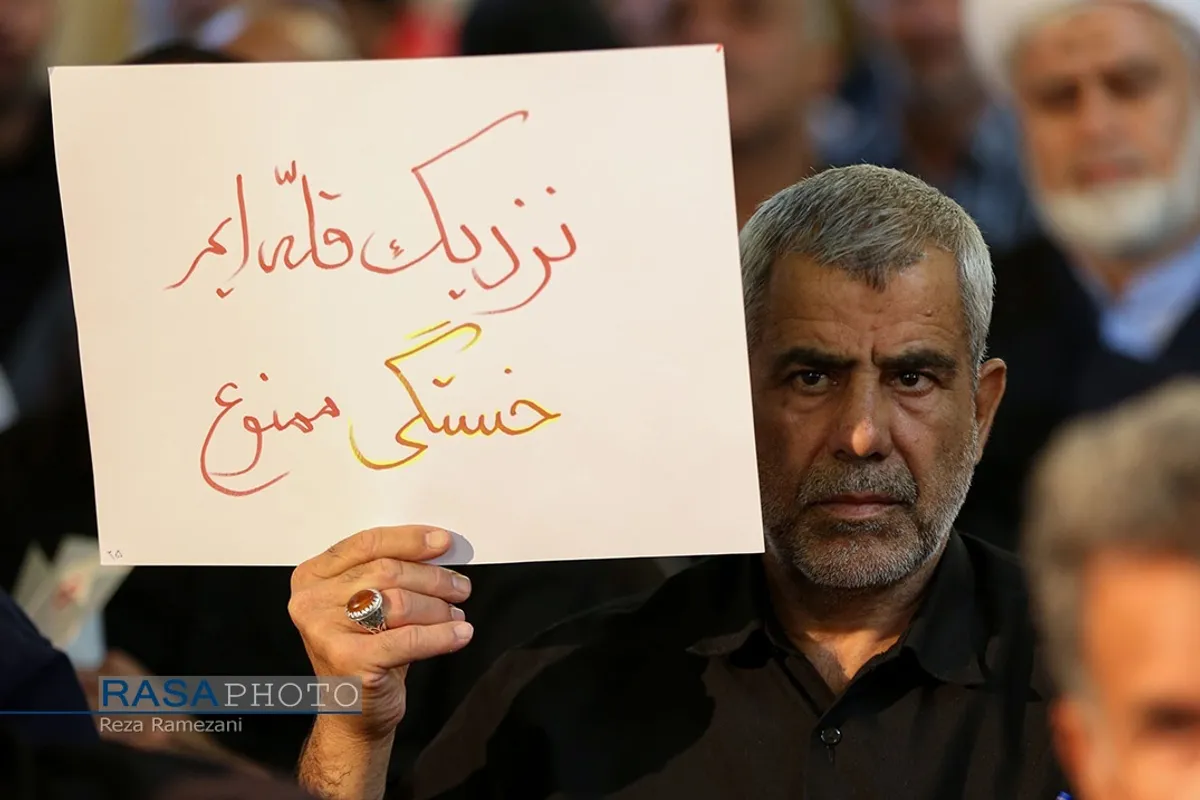 نزدیک قلّه ایم
خستگی ممنوع
۲۵
RASAPHOTO
Reza Ramezani